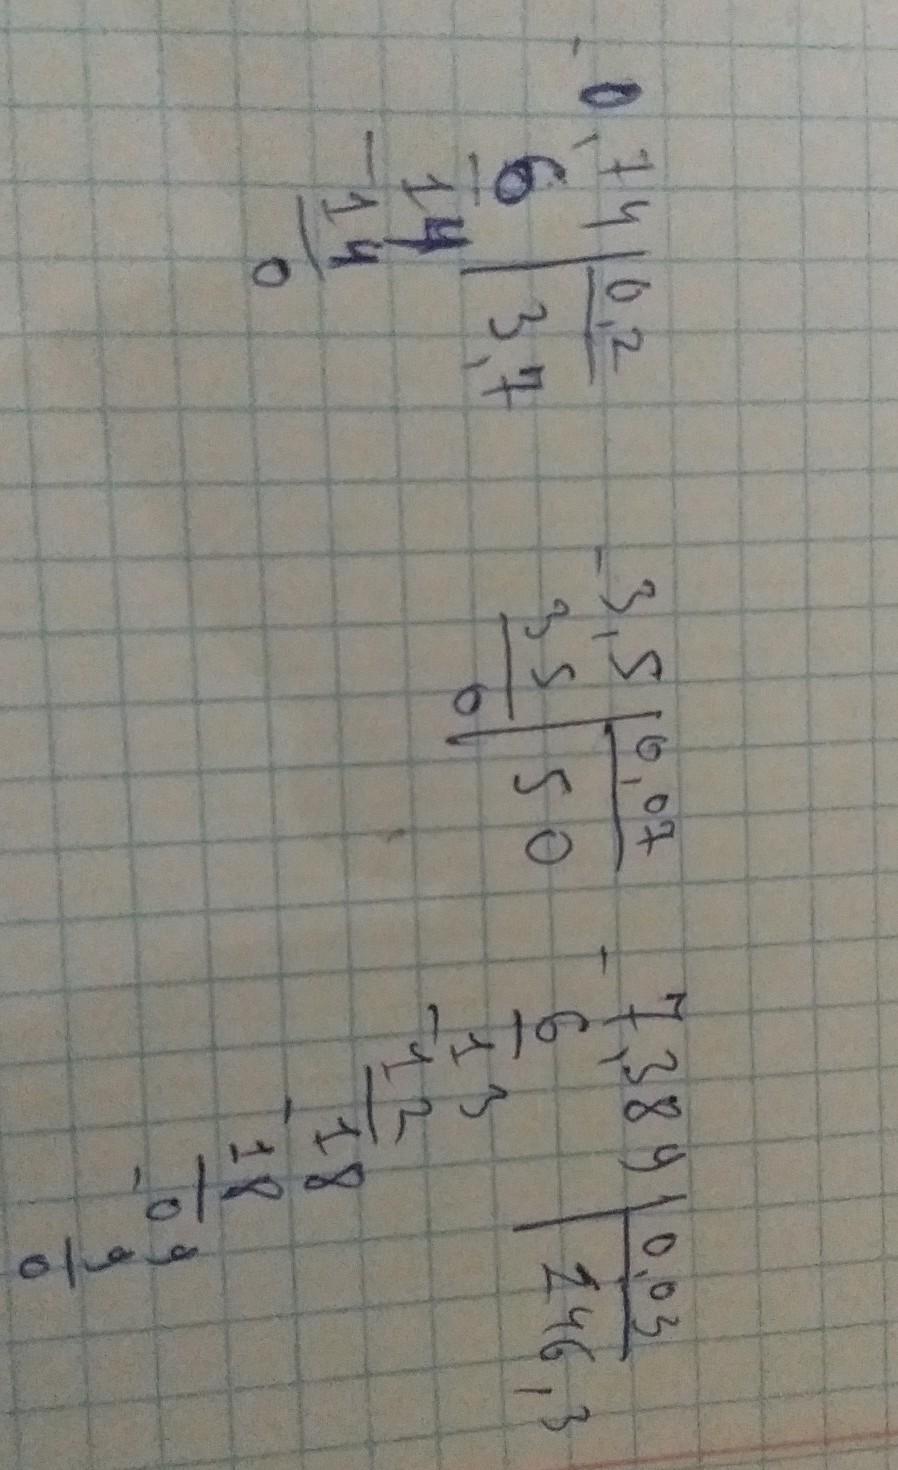 - 0,74 | 0,2
6 | 3,7
- 14
- 14
0
- 3,5 | 0,07
3 5 | 50
0
- 7,389 | 0,03
6 | 246,3
- 13
- 12
18
- 18
- 09
9
0